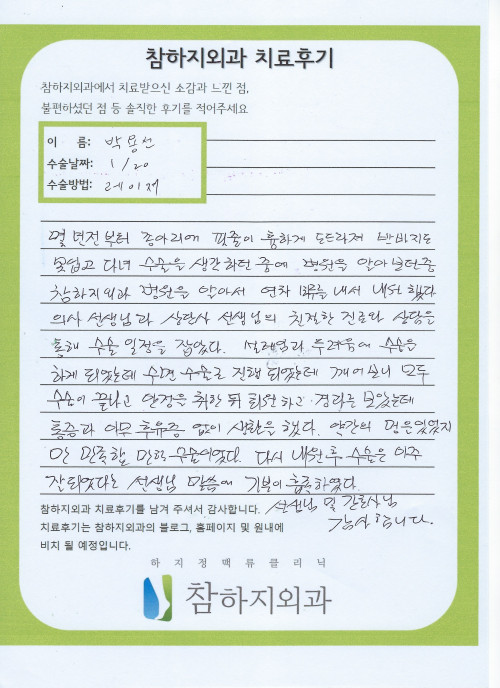 참하지외과 치료후기
참하지외과에서 치료받으신 소감과 느낀 점,
불편하셨던 점 등 솔직한 후기를 적어주세요
이 름: 박용선
수술날짜: 1/20
수술방법: 레이저
몇 년전부터 종아리에 핏줄이 흉하게 도드라져 반바지도
못입고 다녀 수술을 생각하던 중에 병원을 알아보던중
참하지외과 병원을 알아서 연차 내서 내원 했다
의사 선생님과 상담사 선생님의 친절한 진료와 상담을
통해 수술 일정을 잡았다. 설레임과 두려움에 수술을
하게 되었는데 수면 수술로 진행 되었는데 깨어보니 모두
수술이 끝나고 안정을 취한 뒤 퇴원하고 경과를 보았는데
통증과 아무 후유증 없이 생활을 했다. 약간의 멍은있었지
만 만족할 만한 수술이였다. 다시 내원후 수술은 아주
잘되었다는 선생님 말씀에 기분이 흡족하였다.
선생님 및 간호사님
감사합니다.
참하지외과 치료후기를 남겨 주셔서 감사합니다.
치료후기는 참하지외과의 블로그, 홈페이지 및 원내에
비치 될 예정입니다.
하지정맥류클리닉
참하지외과